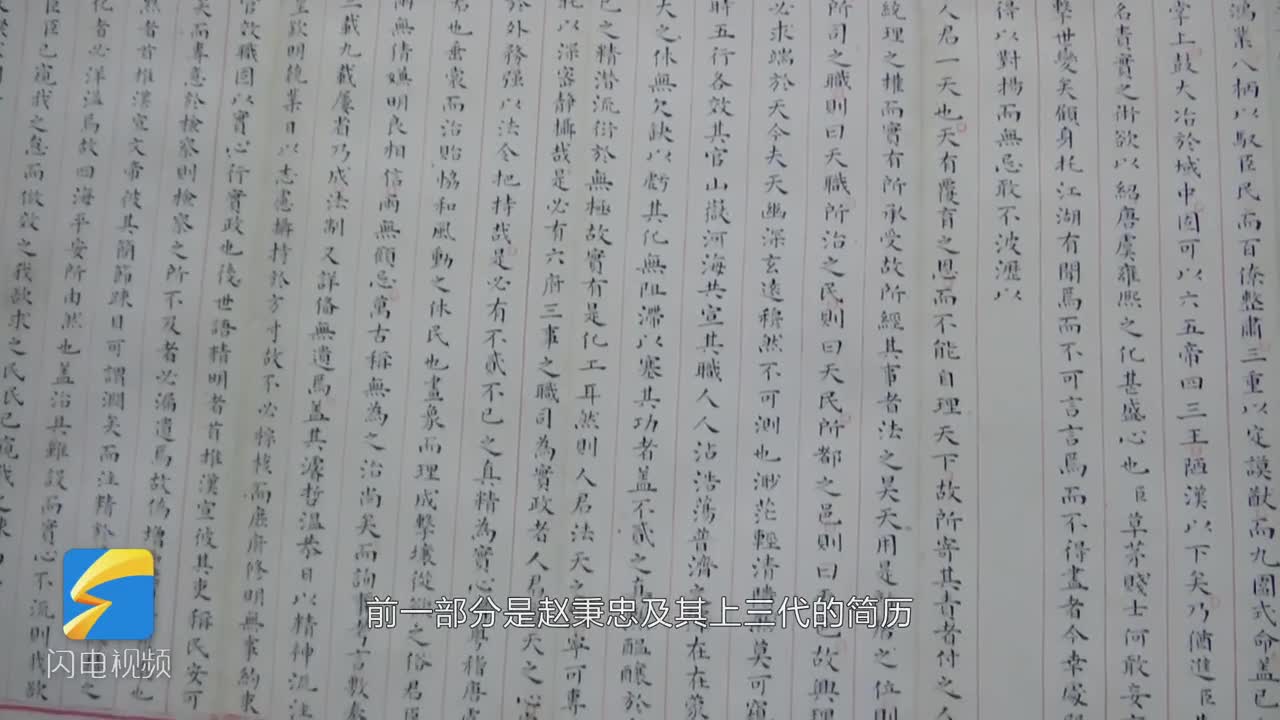 鴻業八柄以馭臣民而百僚整肅三重以定謨猷而九圍式命蓋已
掌上鼓大冶於域中固可以六五帝四三王陋漢以下矣乃猶進臣
名責實之術欲以紹唐虞雍熙之化甚盛心也臣草茅賤士何敢妄
擊世變矣顧身托江湖有聞焉而不可言言焉而不得盡者今幸處
得以對揚而無忌敢不披瀝以
人君一天也天有覆育之恩而不能自理天下故所寄其責者付之人
統理之權而實有所承受故所經其事者法之昊天用是所居之位則
所司之職則曰天職所治之民則曰天民所都之邑則曰
故興理
必求端於天今夫天幽深玄遠穆然不可測也渺茫輕清
莫可窺
時五行各效其官山嶽河海共宣其職人人沾浩蕩普濟
在在蒙
大之休無欠缺以虧其化無阻滯以塞其功者蓋不貳之
醞釀於
已之精潛流衍於無極故實有是化工耳然則人君法天之
可專
托以深宮靜攝哉是必有六府三事之職司為實政者人君
天之心
於外務強以法令把持哉是必有不貳不已之真精為實心
稽唐虞
君也垂裳而治貽協和風動之休民也畫象而理成擊壤從
之俗君臣
無倩嫌明良相信而無顧忌萬古稱無為之治尚矣而詢
言數奏
三載九載屢省乃成法制又詳備無遺焉蓋其濬哲溫恭日以精神流注
欽明後業日以志慮攝持於方寸故不必綜核而庶府修明無事約束
官效職固以實心行實政也後世語精明者首推漢宣彼其吏稱民安可
矣而專意於檢察則檢察之所不及者必漏遺焉故偽增
也
然者首推漢文帝彼其簡節疎目可謂濶矣而注精於
化者必洋溢焉故四海平安所由然也蓋治具雖設而實心不流則我欲
臣臣已窺我之怠而倣效之我欲求之民民已窺我之疎而
前一部分是赵秉忠及其上三代的简历
闪电视频